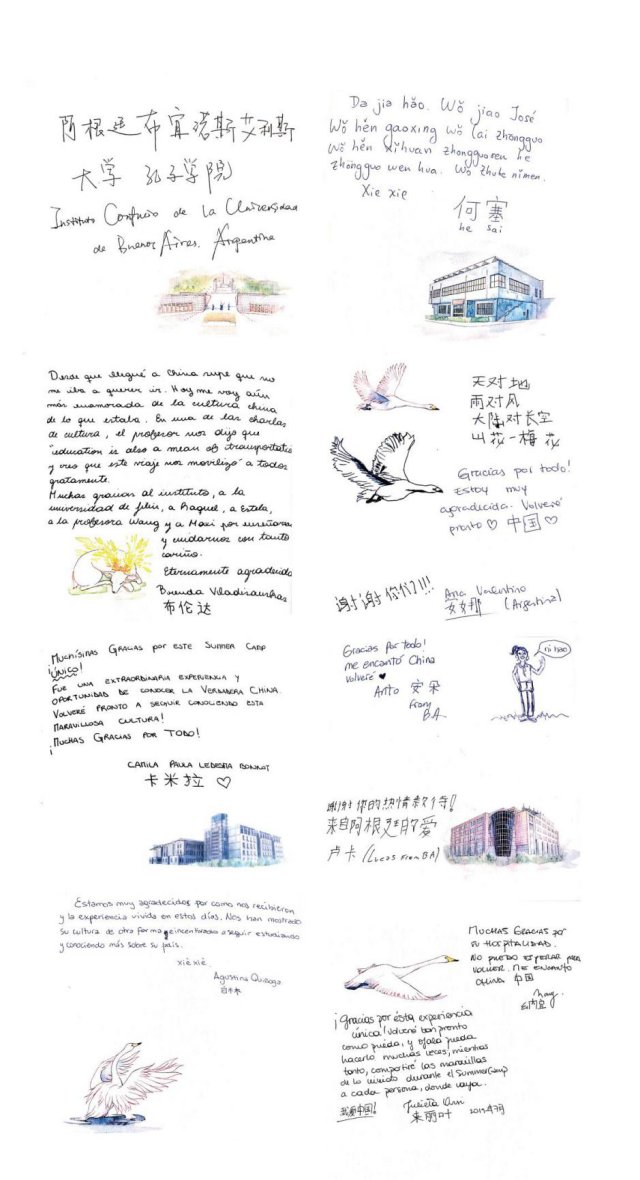 阿根廷布宜诺斯艾利斯
大学 孔子学院
Instituto Confucio de la Universidad
de Buenos Aires. Argentina
Da jia hǎo. Wǒ jiao José
Wǒ hěn gaoxing wǒ lai zhongguo
Wǒ hěn xihuan zhongguoren he
zhongguo wen hua. Wǒ zhuhe nimen.
Xie xie
何塞
he sai
Desde que llegué a China supe que no
me iba a querer ir. Hoy me voy aún
más enamorada de la cultura china
de lo que estaba. En una de las charlas
de cultura, el profesor nos dijo que
"education is also a mean of transportatio
y creo que este viaje nos movilizó a todos
gratamente.
Muchas gracias al instituto, a la
universidad de Jilin, a Raquel, a Estela,
a la profesora Wang y a Maxi por enseñarnos
y cuidarnos con tanto
cariño.
Eternamente agradecida
Brenda
布伦达
天对地
雨对风
大陆对长空
山花一梅花
Gracias por todo!
Estoy muy
agradecida. Volveré
pronto ♡ 中国 ♡
谢谢你们!!!
Ana Valentino
安娜 (Argentina)
Muchísimas Gracias por este Summer Camp
¡Único!
Fue una extraordinaria experiencia y
oportunidad de conocer la Verdadera China.
Volveré pronto a seguir conociendo esta
maravillosa cultura!
¡Muchas Gracias por todo!
Camila Paula Ledesma
卡米拉 ♡
Gracias Por todo!
me encantó China
volveré ♥
Anto 安朵
from
B.A
ni hao
谢谢你的热情款待!
来自阿根廷的爱
卢卡 (Lucas from BA)
Estamos muy agradecidos por como nos recibieron
y la experiencia vivida en estos días. Nos han mostrado
su cultura de otra forma e incentivados a seguir estudiando
y conociendo más sobre su país.
xiè xiè.
Agustina Quiroga
Muchas Gracias por
su hospitalidad.
No puedo esperar para
volver. Me encanto
China 中国
¡Gracias por ésta experiencia
única! Volveré tan pronto
como pueda, y ojalá pueda
hacerlo muchas veces, mientras
tanto, compartiré las maravillas
de lo vivido durante el Summer Camp
a cada persona, donde vaya.
我爱中国!
Julieta
朱丽叶 2017年7月